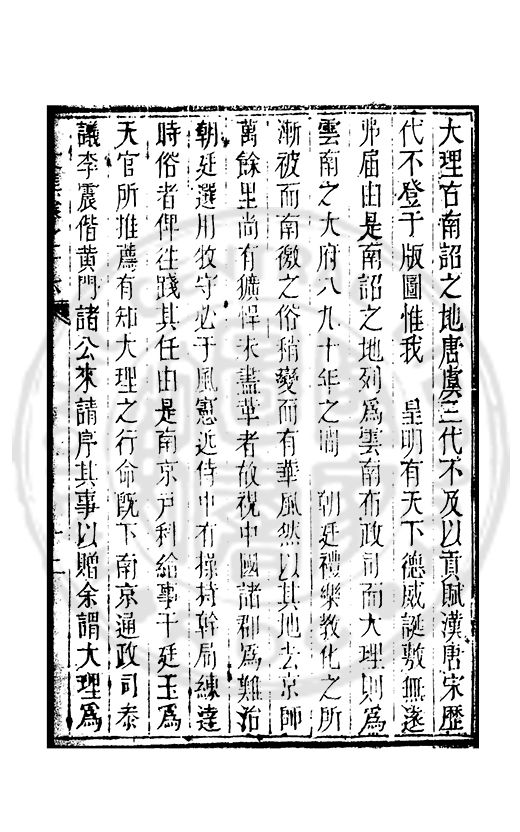 大理古南詔之地唐虞三代不及以貢賦漢唐宋歷
代不登于版圖惟我　皇明有天下德威誕敷無遠
弗屆由是南詔之地列爲雲南布政司而大理則爲
雲南之大府八九十年之間　朝廷禮樂敎化之所
漸被而南徼之俗稍變而有華風然以其地去京師
萬餘里尚有獷悍未盡革者故視中國諸郡爲難治
朝廷選用牧守必于風憲近侍中有操持幹局練達
時俗者俾往踐其任由是南京戶科給事干廷玉爲
天官所推薦有知大理之行命旣下南京通政司叅
議李震偕黄門諸公來請序其事以贈余謂大理爲
十二